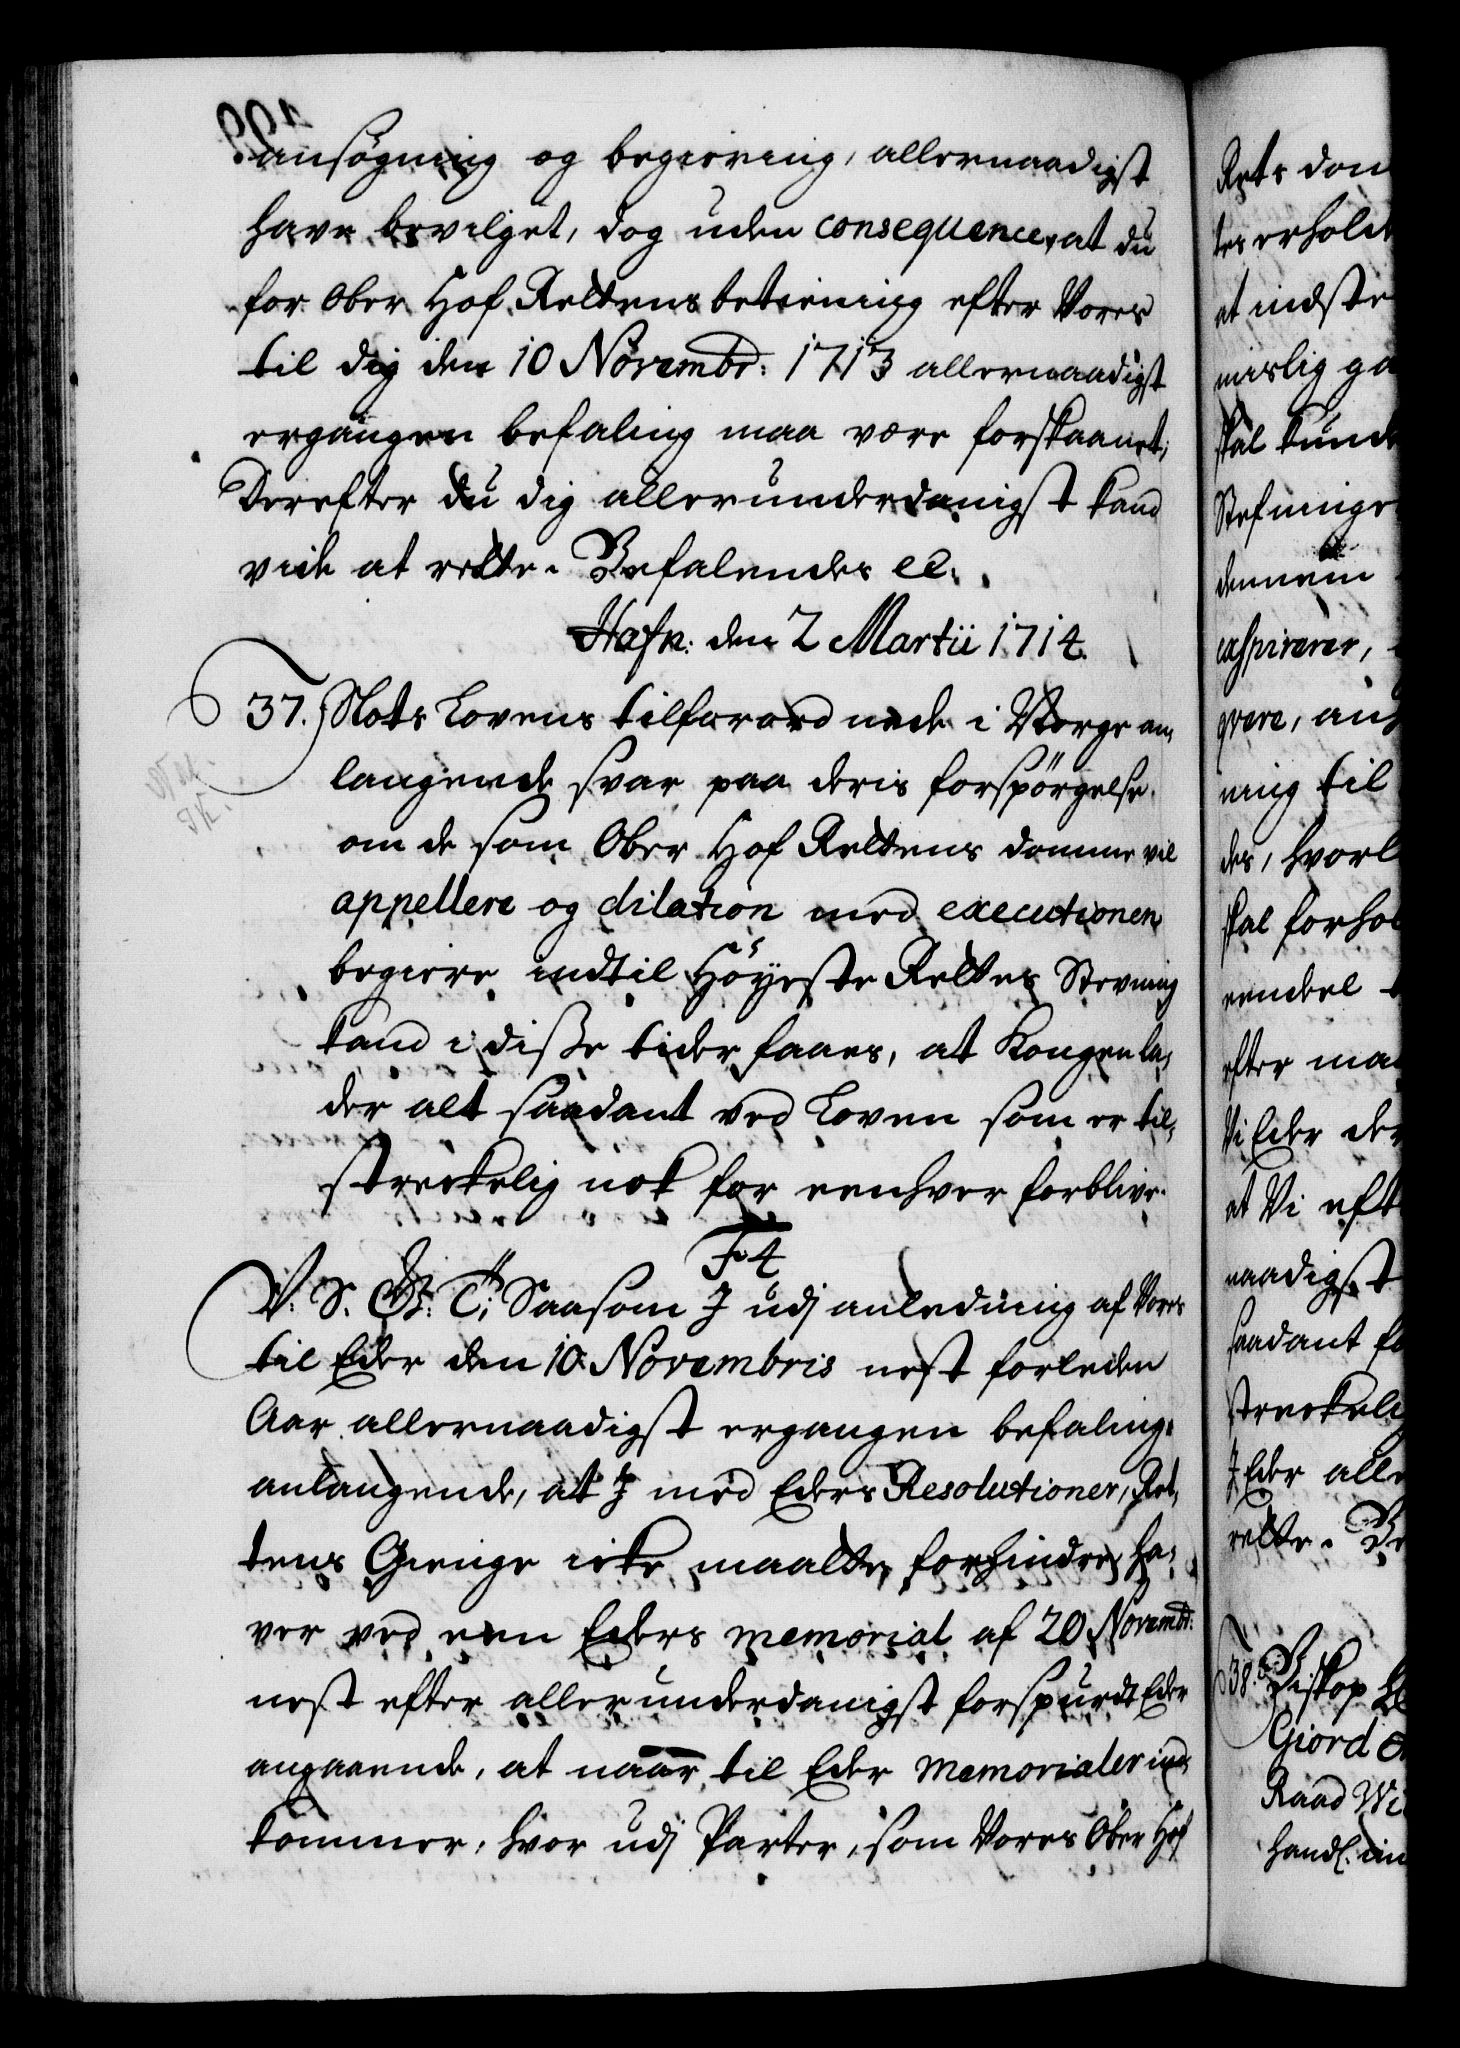 ansøgning og begiering, allernaadigst
have bevilget, dog uden consequence, at du
for Ober Hof Rettens betiening efter Vores
til dig den 10 Novembr: 1713 allernaadigst
ergangen befaling maa være forskaanet;
Derefter du dig allerunderdanigst kand
vide at rette. Befalendes etc.
Hafn: den 2 Martii 1714.
37. Slots Lovens tilforordnede i Norge an-
langende svar paa deris forspørgelse
om de som Ober Hof Rettens domme vil
appellere og dilation med executionen
begiere indtil Høyeste Rettes Stevning
kand i disse tider faaes, at Kongen la-
der alt saadant ved Loven som er til-
streckelig nok for eenhver forblive.
F 4
V. S. G. T. Saasom J udj anledning af Vores
til Eder den 10 Novembris nest forleden
Aar allernaadigst ergangen befaling
anlangende, at J med Eders Resolutioner, Ret-
tens Gienge icke maatte forhindre, ha-
ver ved een Eders memorial af 20 Novembr:
nest efter allerunderdanigst forspurdt Eder
angaaende, at naar til Eder Memorialer ind-
kommer, hvor udj Parter, som Vores Ober Hof
Rets dom
tes erhold
at indste
mislig
skal kunde
Stefninge
dennem
exspirerer,
qvere,
ning til
des, hvorl
skal forhol
eendeel
efter
Vi Eder der
at Vi eft
naadigst
saadant fo
streckeli
J Eder alle
rette. Be
38. Biskop
Giord
Raad
handl.